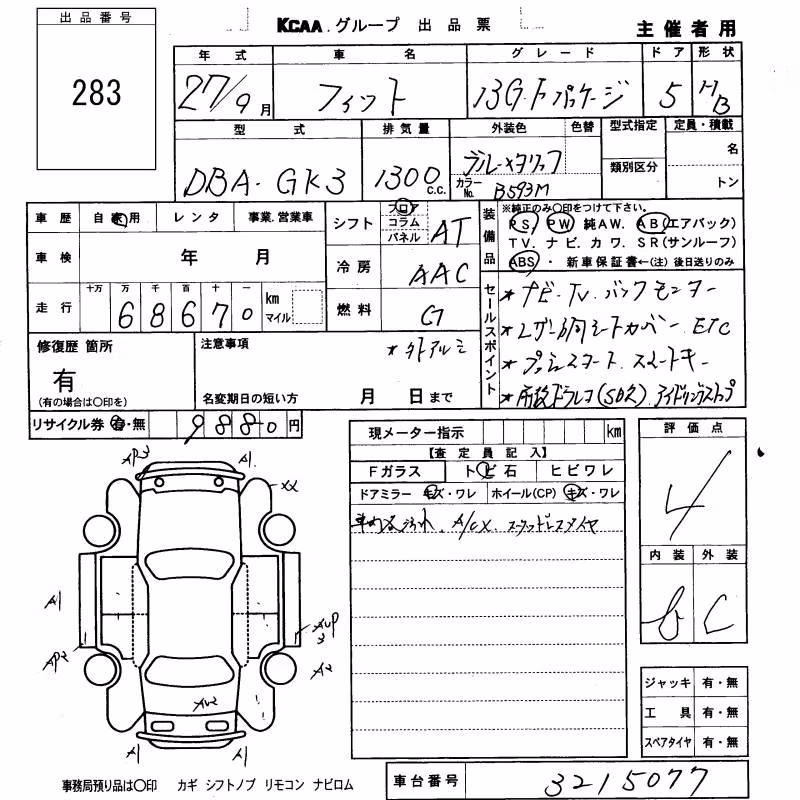 出品番号
283
KCAA.グループ 出品票
主催者用
年式 車名 グレード ドア 形状
27/9月 フィット 13G.Fパッケージ 5 HB
型式 排気量 外装色 色替 型式指定 定員・積載
DBA-GK3 1300 c.c. ブルーメタリック 名
カラーNo. B593M 類別区分 トン
車歴 自家用 レンタ 事業.営業車
車検 年 月
走行 十万 万 千 百 十 一 km マイル
68670
シフト フロア コラム パネル AT
冷房 AAC
燃料 G
装備品
※純正のみ○印をつけて下さい。
PS. PW 純AW. AB(エアバック)
TV. ナビ. カワ. SR(サンルーフ)
ABS ・ 新車保証書←(注) 後日送りのみ
セールスポイント
*ナビ.TV.バックモニター
*レザー調シートカバー.ETC
*プッシュスタート.スマートキー
*前後ドラレコ(SD欠).アイドリングストップ
修復歴 箇所
有
(有の場合は○印を)
注意事項 *社外アルミ
名変期日の短い方 月 日まで
リサイクル券 有・無 9880円
現メーター指示 km
【査定員記入】
Fガラス トビ石 ヒビワレ
ドアミラー キズ・ワレ ホイール(CP) キズ・ワレ
車内汚れ. A/CX. スタッドレスタイヤ
評価点
4
内装 外装
C
AP3 A1
XX
A1
AP2
3
A2
A1 A1
ジャッキ 有・無
工具 有・無
スペアタイヤ 有・無
事務局預り品は○印 カギ シフトノブ リモコン ナビロム
車台番号 3215077